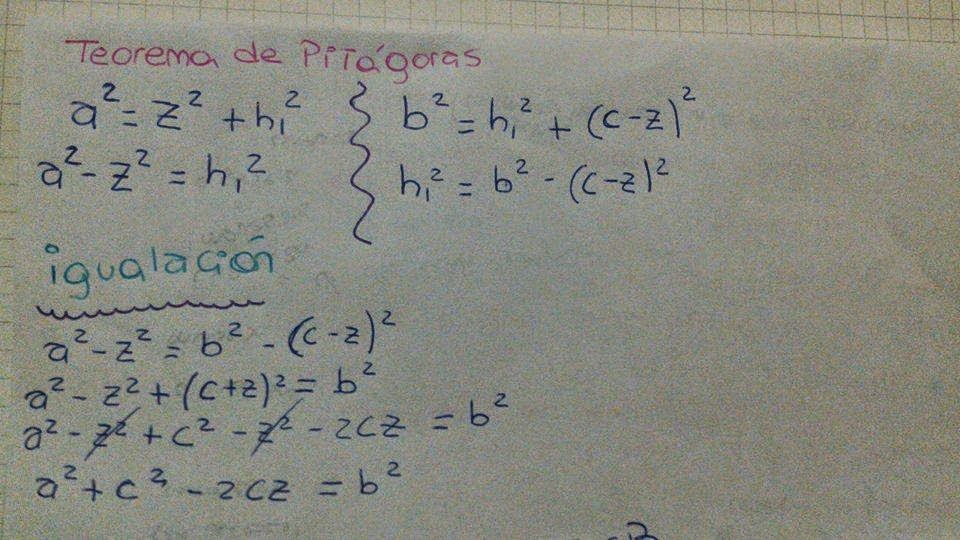 Teorema de Pitágoras
a² = z² + h₁²
a² - z² = h₁²
b² = h₁² + (c-z)²
h₁² = b² - (c-z)²
igualación
a² - z² = b² - (c-z)²
a² - z² + (c+z)² = b²
a² - z² + c² - z² - 2cz = b²
a² + c² - 2cz = b²